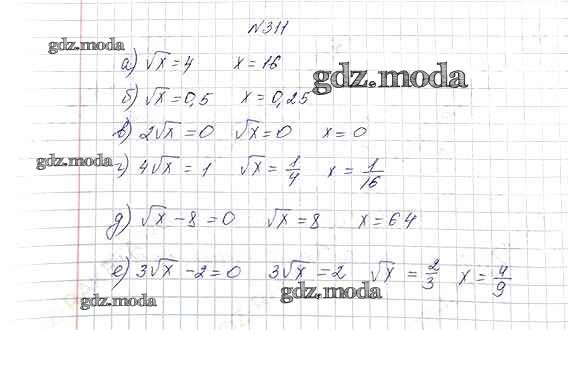 №311
gdz.moda
а) √x = 4 x = 16
gdz.moda
б) √x = 0,5 x = 0,25
в) 2√x = 0 √x = 0 x = 0
gdz.moda
г) 4√x = 1 √x = 1/4 x = 1/16
д) √x - 8 = 0 √x = 8 x = 64
е) 3√x - 2 = 0 3√x = 2 √x = 2/3 x = 4/9
gdz.moda
gdz.moda